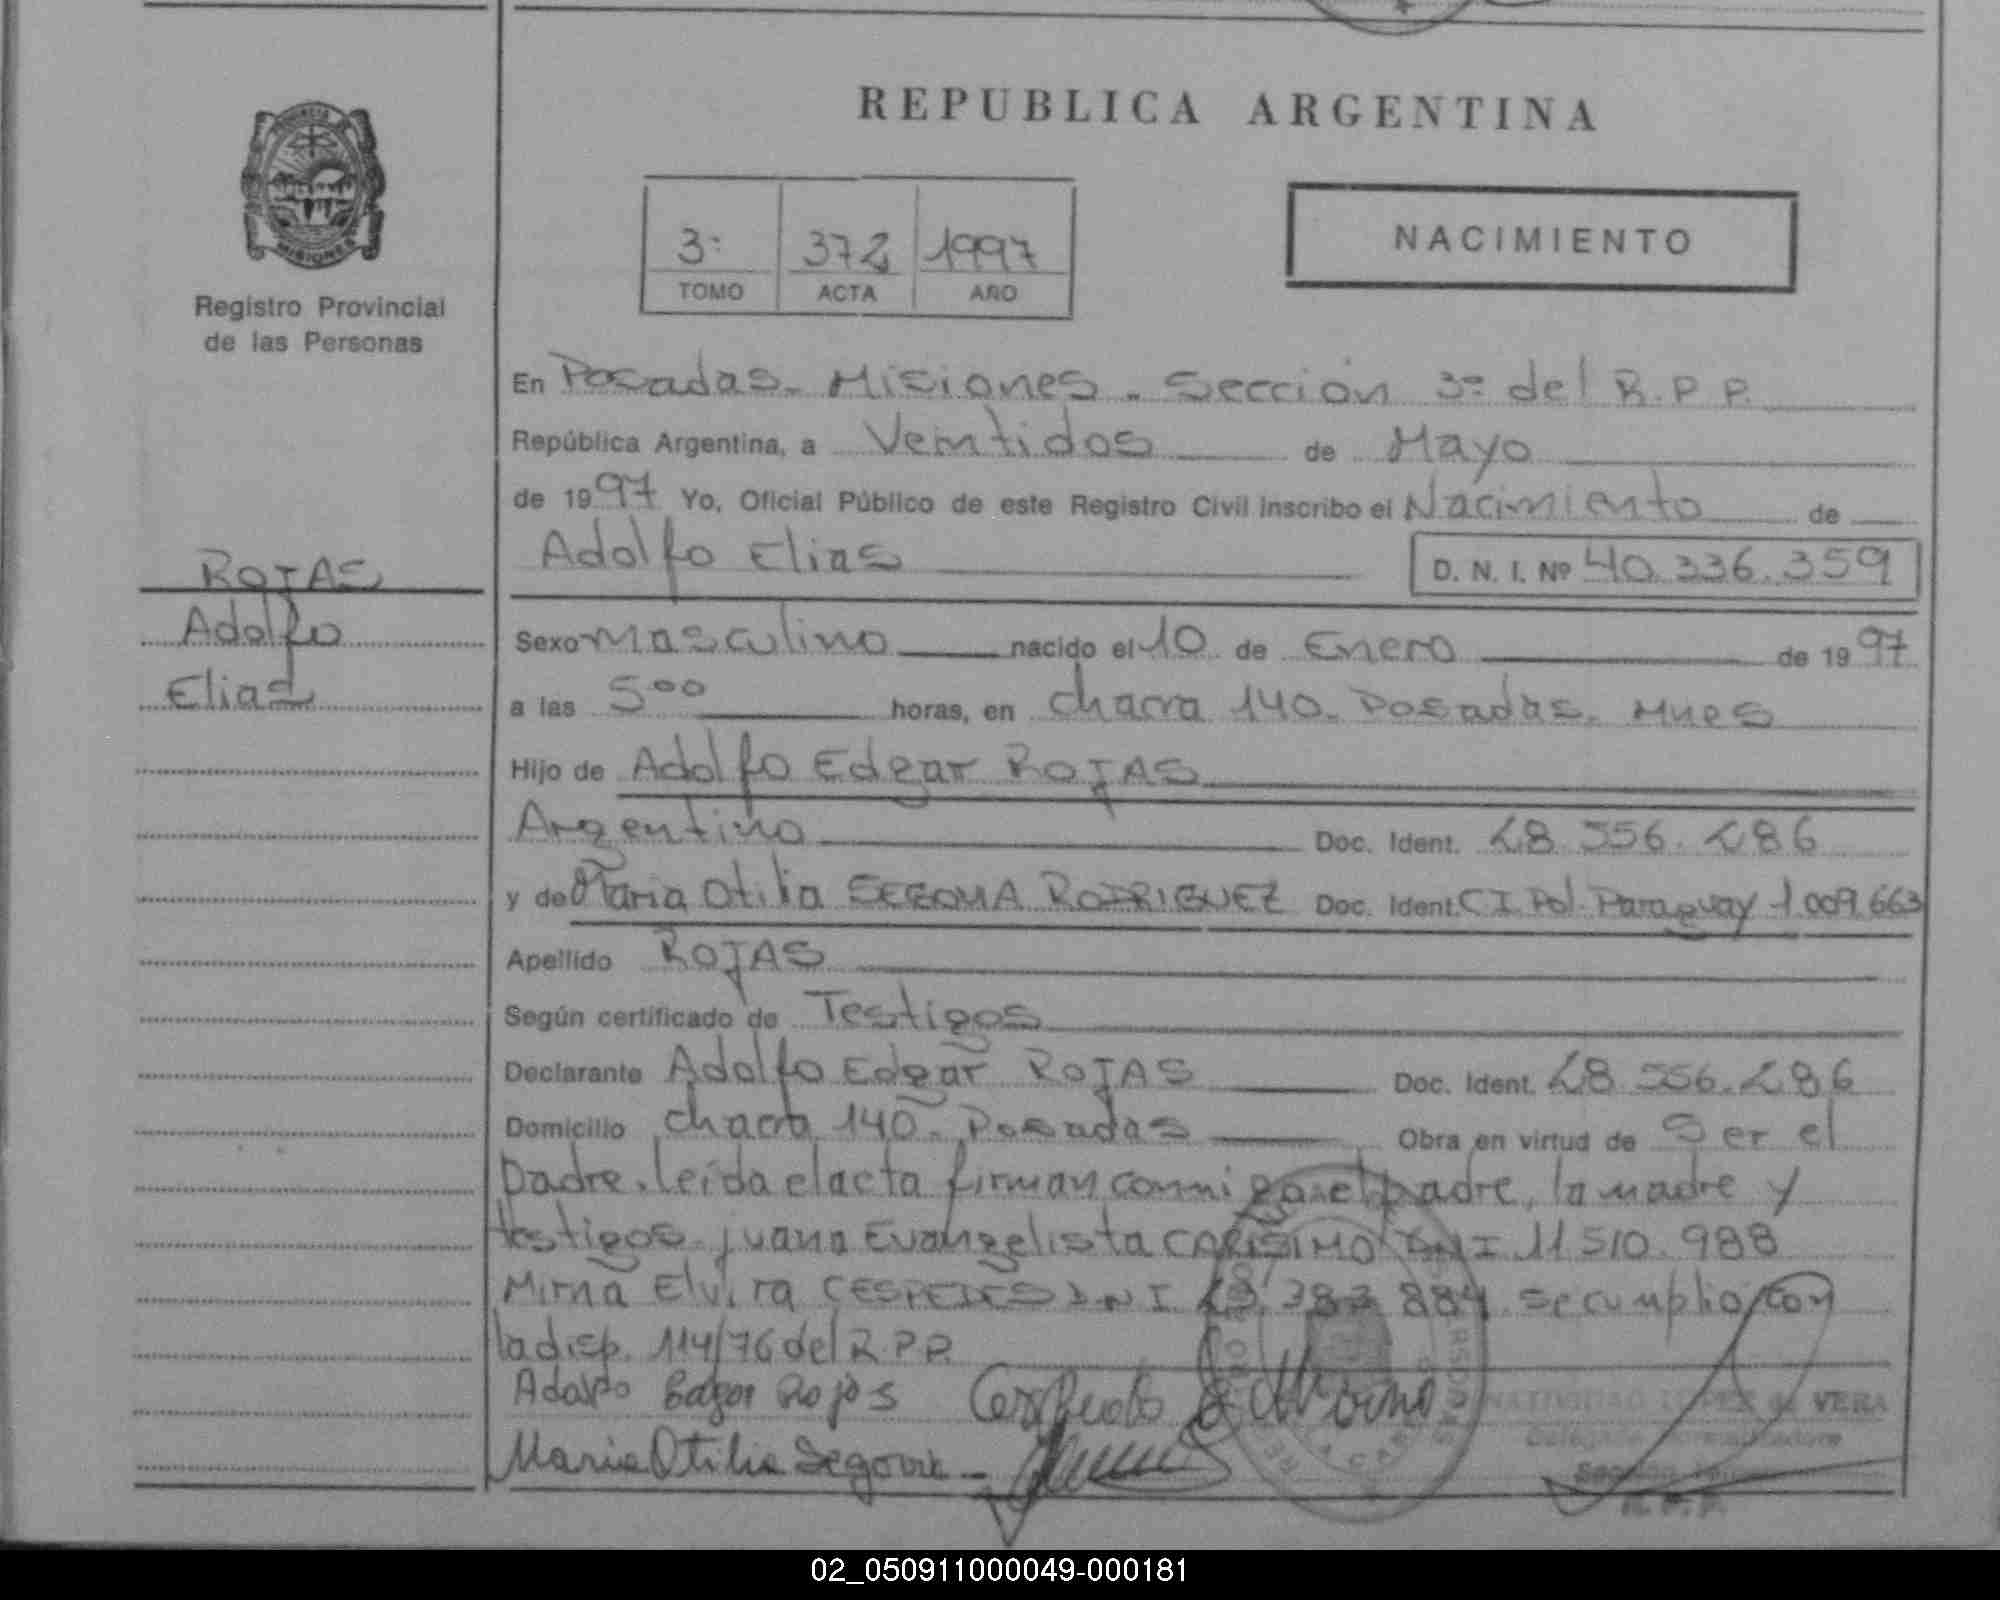 REPUBLICA ARGENTINA
Registro Provincial
de las Personas
3: 372 1997
TOMO ACTA AÑO
NACIMIENTO
En Posadas. Misiones. Sección 3ª del R.P.P.
República Argentina, a Veintidos de Mayo
de 1997 Yo, Oficial Público de este Registro Civil inscribo el Nacimiento de
Adolfo Elias D. N. I. Nº 40.336.359
ROJAS
Adolfo
Elias
Sexo Masculino nacido el 10 de Enero de 1997
a las 5⁰⁰ horas, en Chacra 140. Posadas. Mnes
Hijo de Adolfo Edgar ROJAS
Argentino Doc. Ident. 28.556.286
y de Maria Otilia SEGOVIA RODRIGUEZ Doc. Ident. C I. Pol. Paraguay 1.009.663
Apellido ROJAS
Según certificado de Testigos
Declarante Adolfo Edgar ROJAS Doc. Ident. 28.556.286
Domicilio Chacra 140. Posadas Obra en virtud de Ser el
padre. leida el acta firman conmigo el padre, la madre y
testigos. Juana Evangelista CARISIMO DNI 11.510.988
Mirna Elvira CESPEDES DNI 383 884 se cumplio con
la disp. 114/76 del R.P.P.
Adolfo Edgar Rojas
NATIVIDAD LOPEZ de VERA
Maria Otilia Segovia
Delegada Normalizadora
R. P. P.
02_050911000049-000181